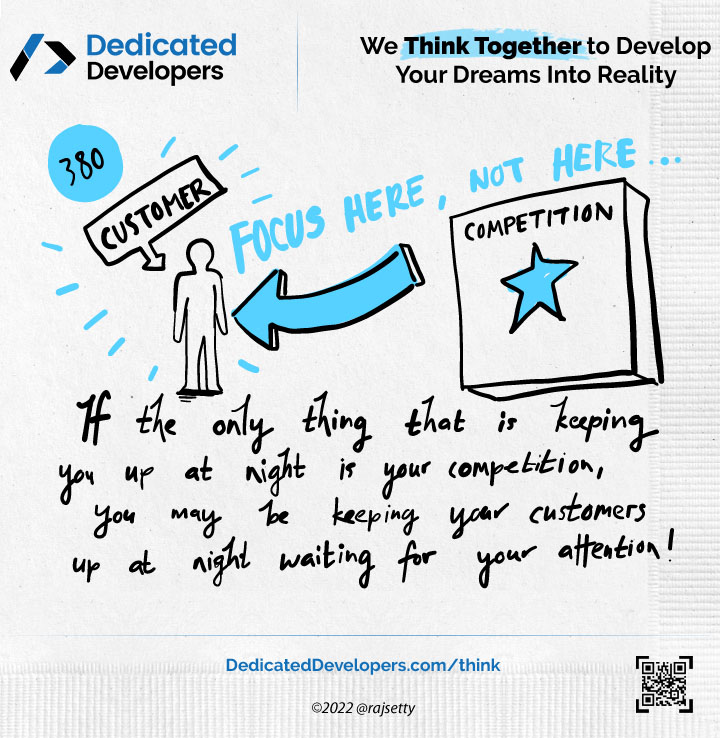 Dedicated
Developers
We Think Together to Develop
Your Dreams Into Reality
380
CUSTOMER
FOCUS HERE, NOT HERE...
COMPETITION
If the only thing that is keeping
you up at night is your competition,
you may be keeping your customers
up at night waiting for your attention!
DedicatedDevelopers.com/think
©2022 @rajsetty